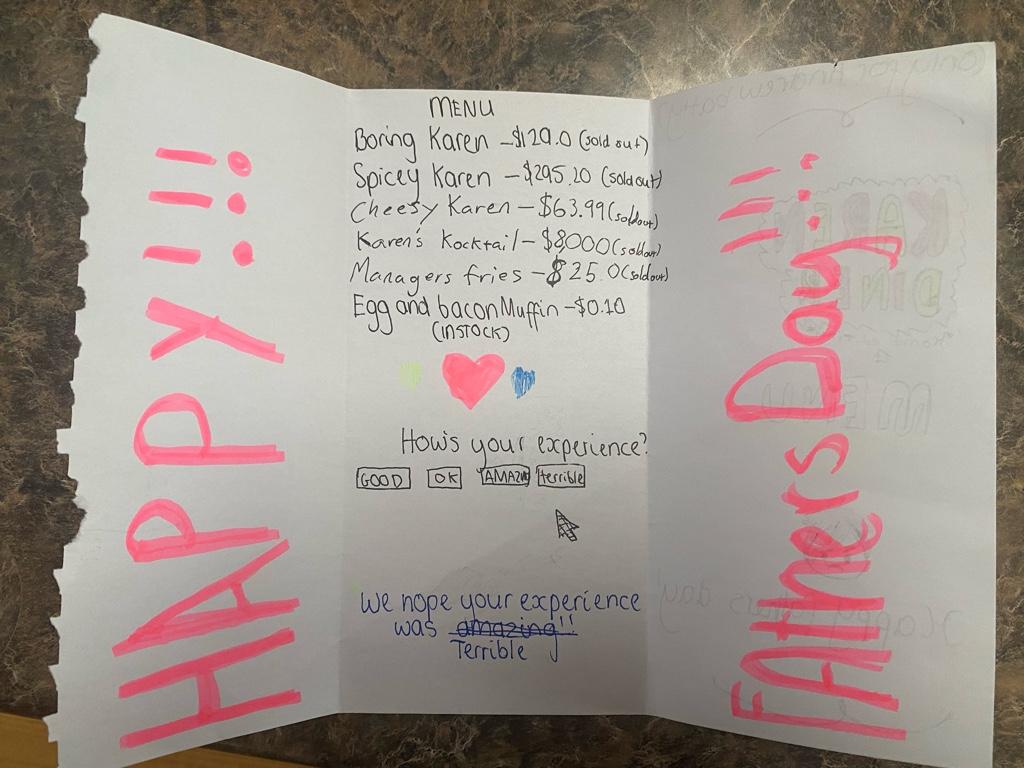 HAPPY!!!
MENU
Boring Karen - $129.0 (sold out)
Spicey Karen - $295.20 (sold out)
Cheesy Karen - $63.99 (soldout)
Karen's Kocktail - $8000 (soldout)
Managers fries - $25.0 (soldout)
Egg and bacon Muffin - $0.10
(INSTOCK)
How's your experience?
GOOD OK AMAZING terrible
We hope your experience
was amazing!!
Terrible
FAthers Day!!!
KAREN
DINER
MENU
Happy fathers day!